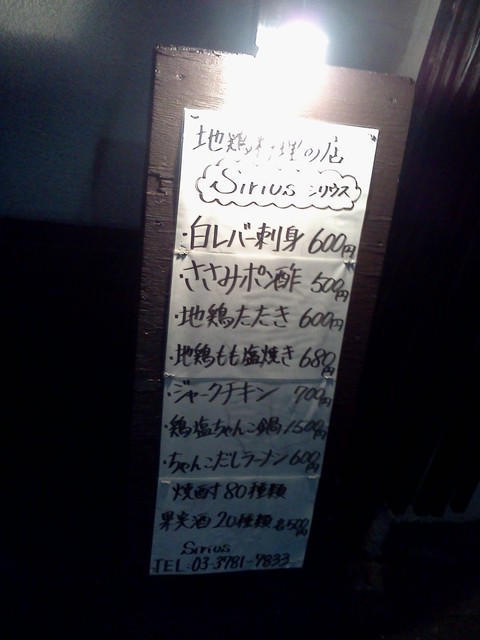 地鶏料理の店
Sirius シリウス
・白レバー刺身 600円
・ささみポン酢 500円
・地鶏たたき 600円
・地鶏もも塩焼き 680円
・ジャークチキン 700円
・鶏塩ちゃんこ鍋 1500円
・ちゃんこだしラーメン 600円
焼酎80種類
果実酒20種類 各500円
Sirius
TEL:03-3781-7833